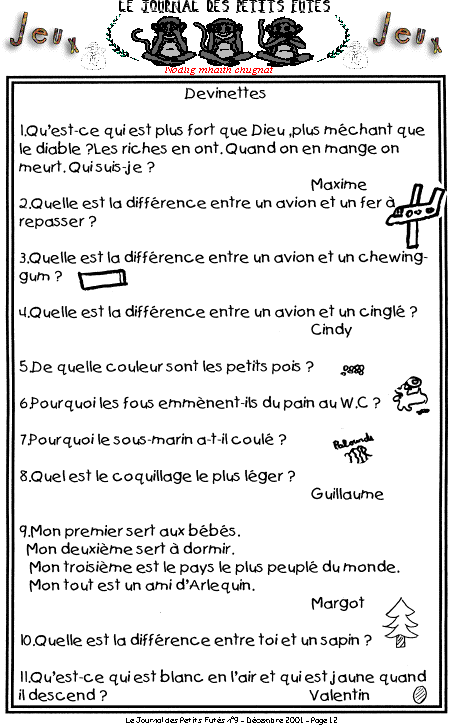 LE JOURNAL DES PETITS FUTES
Jeux Jeux
Nodig mhaith chugnat
Devinettes
1.Qu'est-ce qui est plus fort que Dieu ,plus méchant que
le diable ?Les riches en ont. Quand on en mange on
meurt. Qui suis-je ?
Maxime
2.Quelle est la différence entre un avion et un fer à
repasser ?
3.Quelle est la différence entre un avion et un chewing-
gum ?
4.Quelle est la différence entre un avion et un cinglé ?
Cindy
5.De quelle couleur sont les petits pois ?
6.Pourquoi les fous emmènent-ils du pain au W.C ?
7.Pourquoi le sous-marin a-t-il coulé ?
8.Quel est le coquillage le plus léger ?
Palourde
Guillaume
9.Mon premier sert aux bébés.
Mon deuxième sert à dormir.
Mon troisième est le pays le plus peuplé du monde.
Mon tout est un ami d'Arlequin.
Margot
10.Quelle est la différence entre toi et un sapin ?
11.Qu'est-ce qui est blanc en l'air et qui est jaune quand
il descend ?
Valentin
Le Journal des Petits Futés N°9 - Décembre 2001 - Page 12